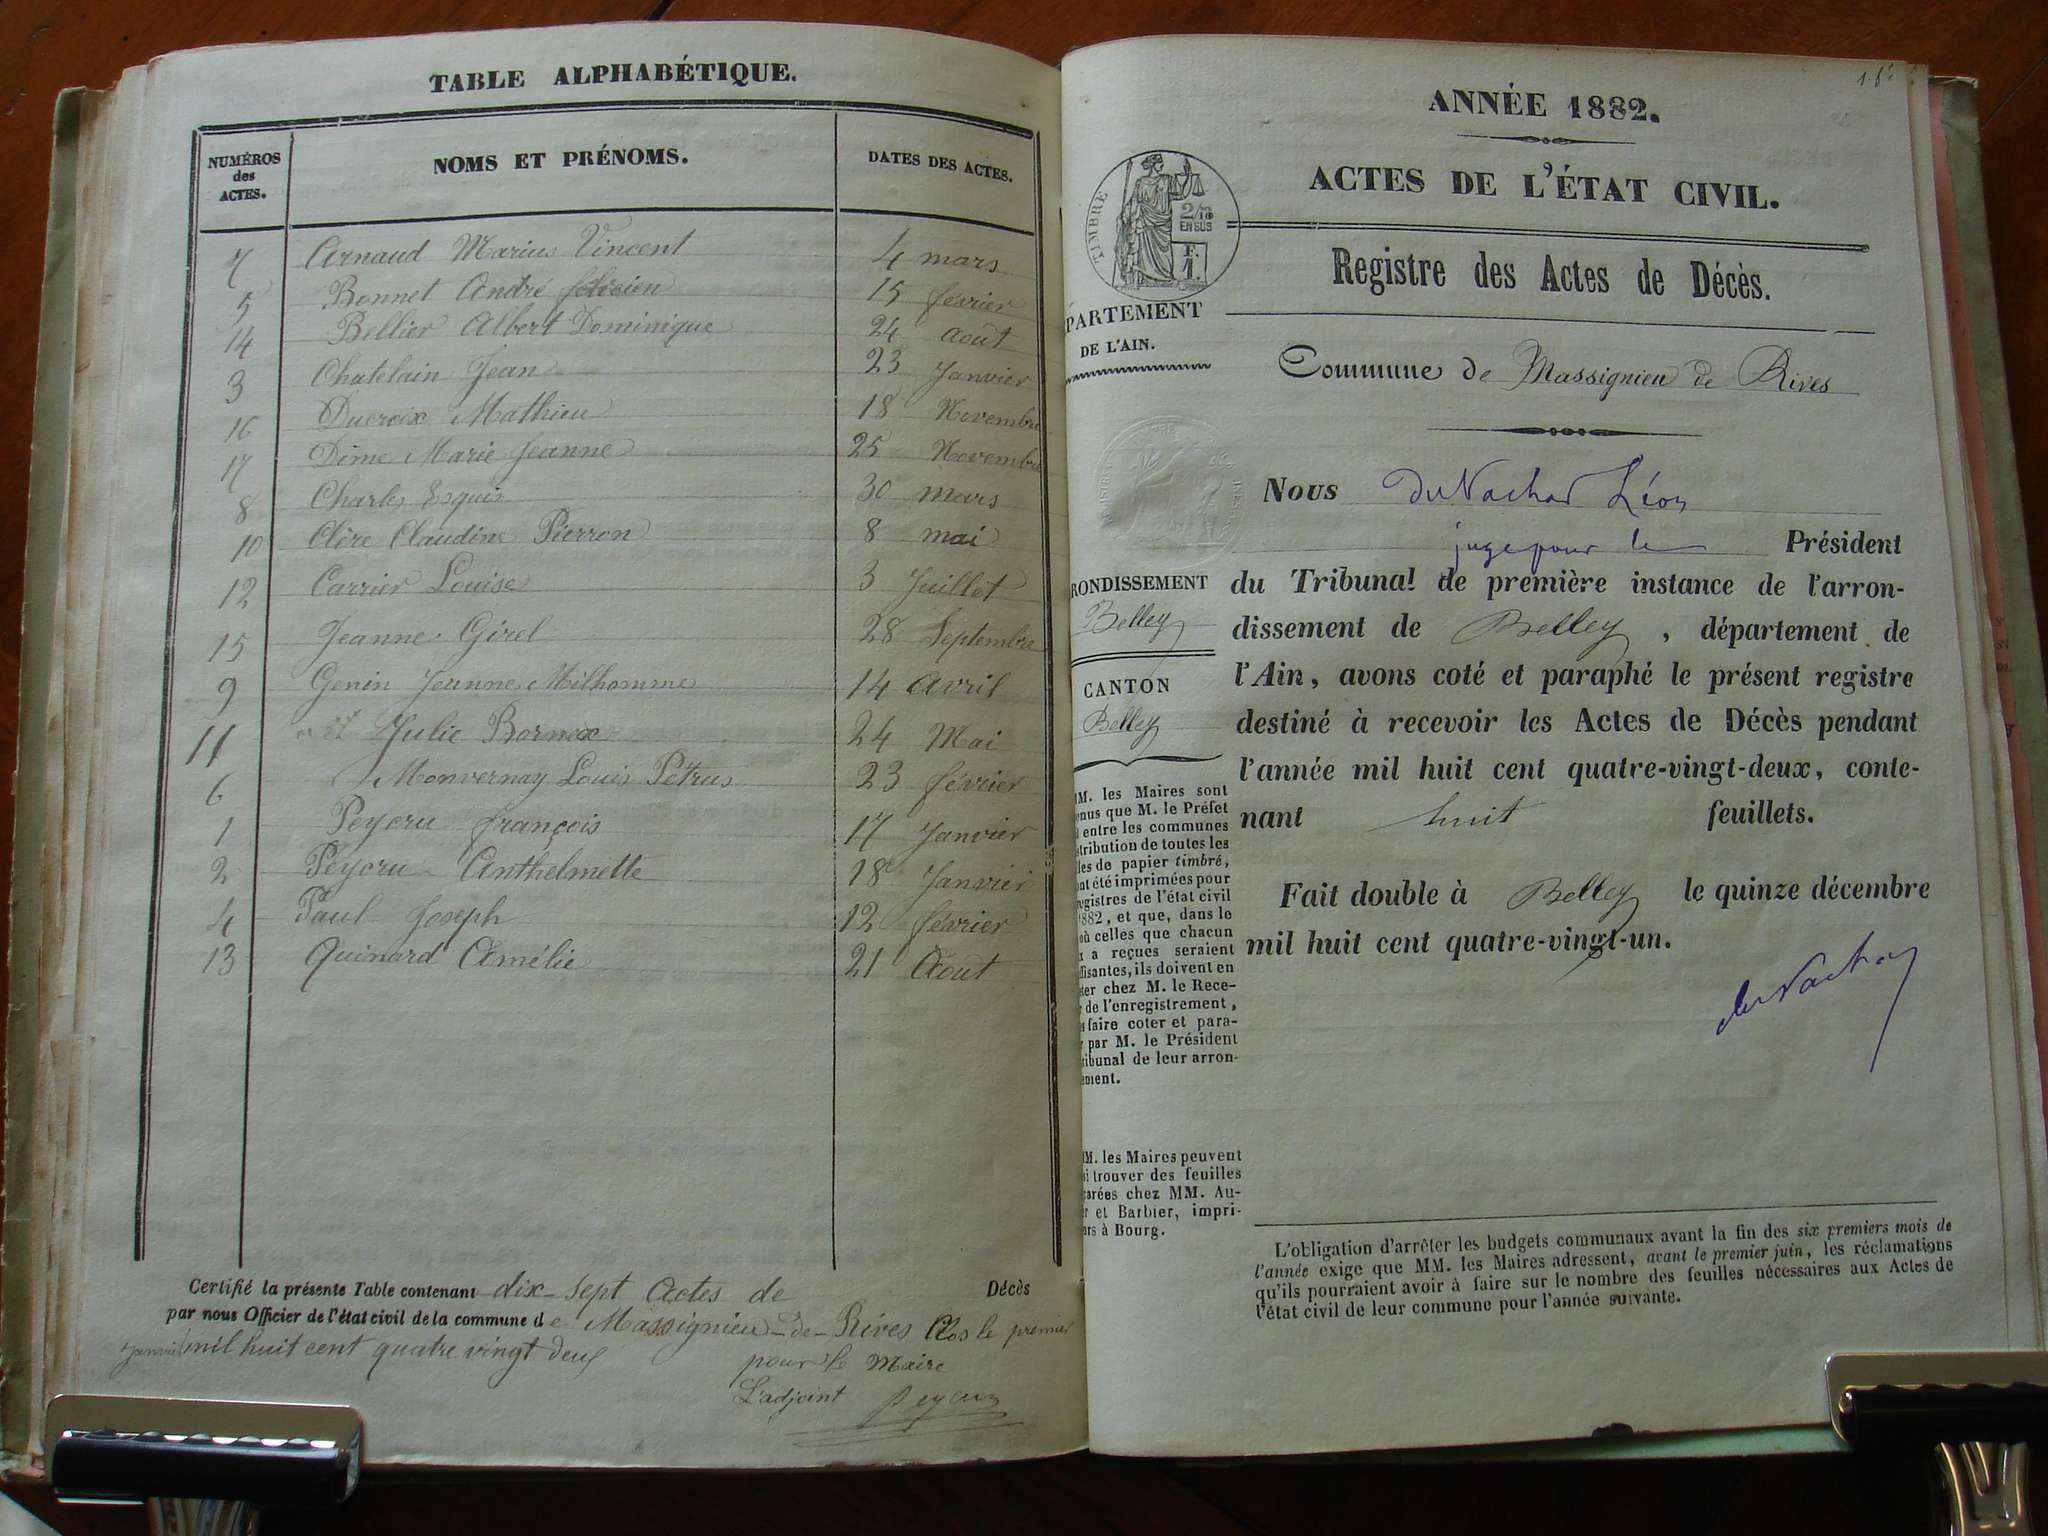 TABLE ALPHABÉTIQUE.
NUMÉROS des ACTES. NOMS ET PRÉNOMS. DATES DES ACTES.
7 Arnaud Marius Vincent 4 mars
5 Bonnet André 15 février
14 Bellier Albert Dominique 24 Août
3 Chatelain Jean 23 Janvier
16 Ducroix Mathieu 18 Novembre
17 Dime Marie Jeanne 25 Novembre
8 Charles Esquis 30 mars
10 Clère Claudine Pierron 8 mai
12 Carrier Louise 3 Juillet
15 Jeanne Girel 28 Septembre
9 Genin Jeanne Milhomme 14 Avril
11 Julie Bornex 24 Mai
6 Monvernay Louis Pétrus 23 février
1 Peycru françois 17 Janvier
2 Peycru Anthelmette 18 Janvier
4 Paul Joseph 12 février
13 Quinard Amélie 21 Août
Certifié la présente Table contenant dix-sept Actes de Décès
par nous Officier de l'état civil de la commune de Massignieu-de-Rives Clos le premier
Janvier mil huit cent quatre vingt deux
pour le Maire
L'adjoint Peycru
ANNÉE 1882.
ACTES DE L'ÉTAT CIVIL.
TIMBRE
2/10
EN SUS
F.
1.
Registre des Actes de Décès.
PARTEMENT
DE L'AIN.
Commune de Massignieu de Rives
Nous du Nachar Léon
juge pour le Président
du Tribunal de première instance de l'arron-
dissement de Belley, département de
l'Ain, avons coté et paraphé le présent registre
destiné à recevoir les Actes de Décès pendant
l'année mil huit cent quatre-vingt-deux, conte-
nant huit feuillets.
Fait double à Belley le quinze décembre
mil huit cent quatre-vingt-un.
du Nachar
RONDISSEMENT
Belley
CANTON
Belley
M. les Maires sont
enus que M. le Préfet
entre les communes
stribution de toutes les
les de papier timbré,
nt été imprimées pour
egistres de l'état civil
882, et que, dans le
où celles que chacun
x a reçues seraient
fisantes, ils doivent en
eter chez M. le Rece-
de l'enregistrement,
s faire coter et para-
par M. le Président
ribunal de leur arron-
ement.
M. les Maires peuvent
si trouver des feuilles
arées chez MM. Au-
r et Barbier, impri-
rs à Bourg.
L'obligation d'arrêter les budgets communaux avant la fin des six premiers mois de
l'année exige que MM. les Maires adressent, avant le premier juin, les réclamations
qu'ils pourraient avoir à faire sur le nombre des feuilles nécessaires aux Actes de
l'état civil de leur commune pour l'année suivante.